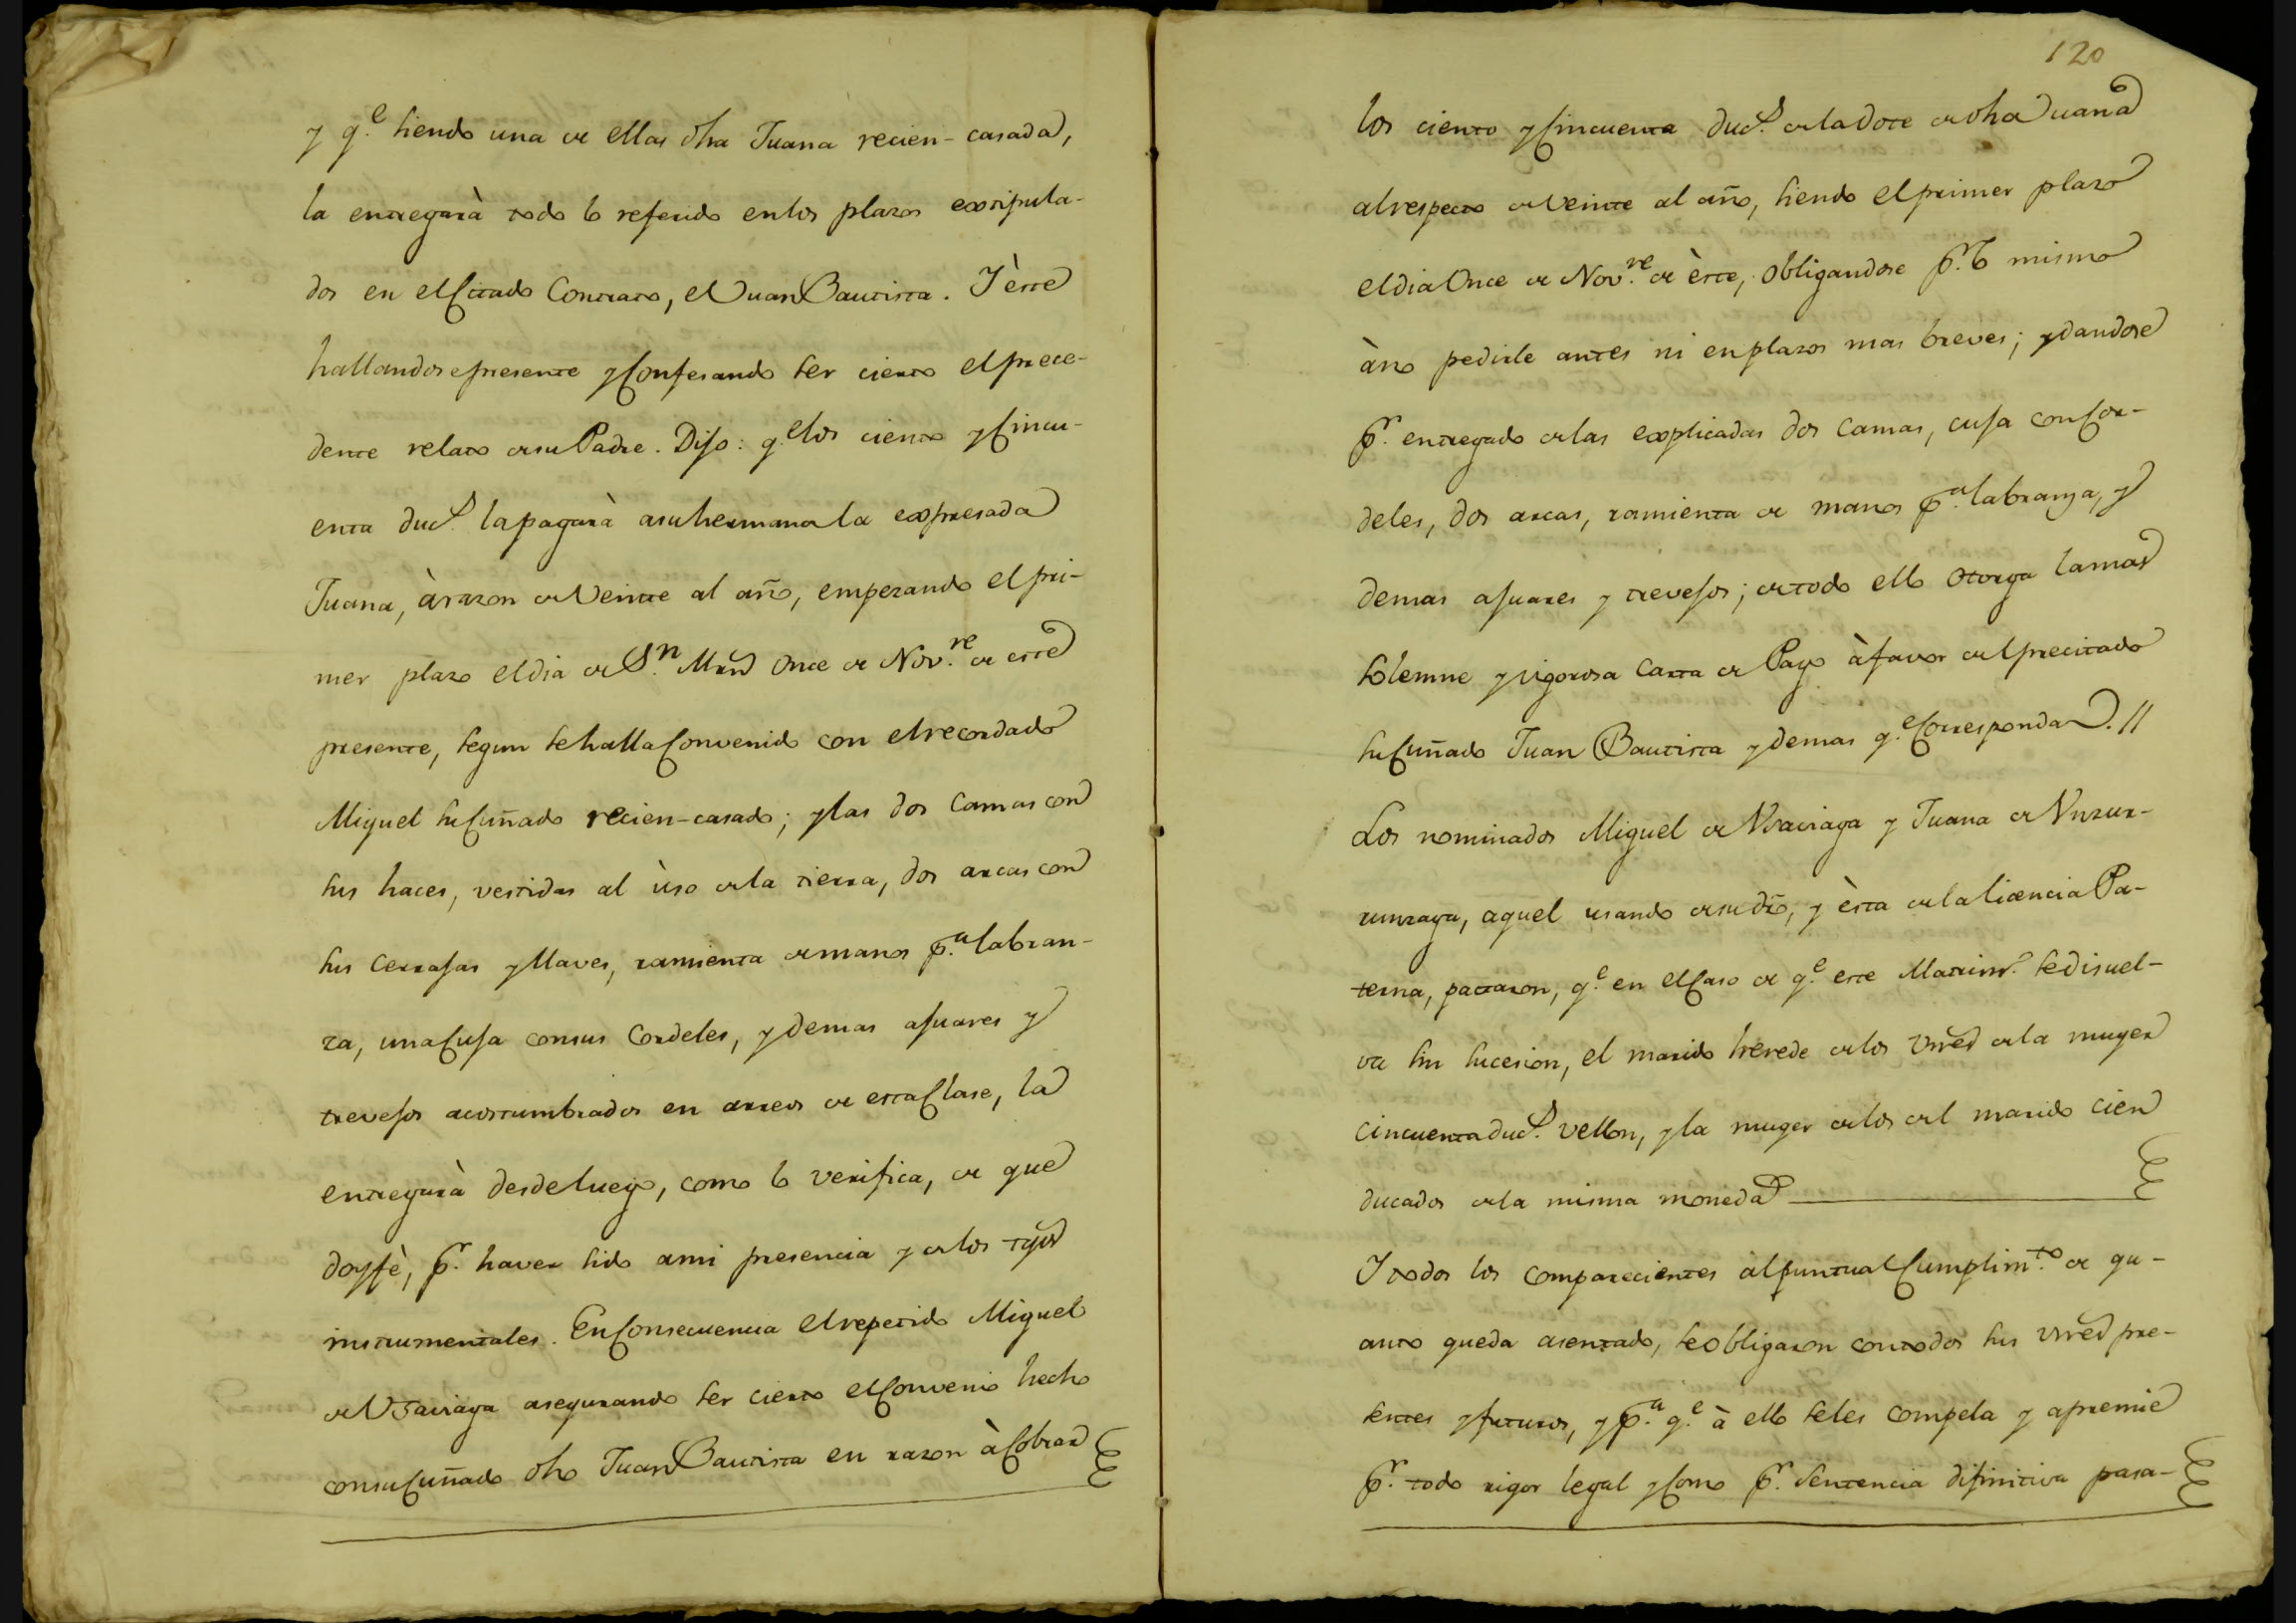 y q.e siendo una de ellas dha Juana recien-casada,
la entregarà todo lo referido en los plazos extipula-
dos en el Citado Contrato, el Juan Bautista. Y èste
hallandose presente y Confesando ser cierto el prece-
dente relato de su Padre. Dijo: q.e los ciento y Cincu-
enta duc.s la pagarà a su hermana la expresada
Juana, à razon de Veinte al año, empezando el pri-
mer plazo el dia de S.n Mrn Once de Nov.re de este
presente, segun se halla Convenido con el recordado
Miguel su Cuñado recien-casado; y las dos Camas con
sus haces, vestidas al ùso de la tierra, dos arcas con
sus Cerrajas y llaves, ramienta de manos p.a labran-
za, una Cuja con sus Cordeles, y demas ajuares y
trevejos acostumbrados en arreos de esta Clase, la
entregarà desde luego, como lo verifica, de que
doy fè, p.r haver sido a mi presencia y de los tgos
instrumentales. En Consecuencia el repetido Miguel
de Vzaviaga asegurando ser cierto el Convenio hecho
con su Cuñado dho Juan Bautista en razon à Cobrar
120
los ciento y Cincuenta duc.s de la Dote de dha Juana
al respecto de Veinte al año, siendo el primer plazo
el dia Once de Nov.re de èste, obligandose p.r lo mismo
à no pedirle antes ni en plazos mas breves; y dandose
p.r entregado de las explicadas dos Camas, cuja con Cor-
deles, dos arcas, ramienta de manos p.a labranza, y
demas ajuares y trevejos; de todo ello Otorga la mas
solemne y vigorosa Carta de Pago à favor del precitado
su Cuñado Juan Bautista y demas q.e Corresponda. //
Los nominados Miguel de Vzaviaga y Juana de Vnzur-
runzaga, aquel usando de su dro, y èsta de la licencia Pa-
terna, pactaron, q.e en el Caso de q.e este Matrim.o se disuel-
va sin sucesion, el marido herede de los vnes de la muger
cincuenta duc.s vellon, y la muger de los del marido cien
ducados de la misma moneda
Y todos los comparecientes àl puntual Cumplim.to de qu-
anto queda asentado, se obligaron con todos sus vnes pre-
sentes y futuros, y p.a q.e à ello se les compela y apremie
p.r todo rigor legal y Como p.r Sentencia difinitiva pasa-